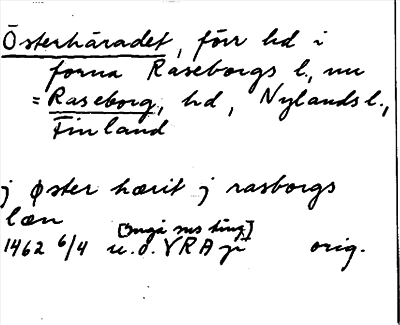 Österhäradet, förr hd i
forna Raseborgs l., nu
= Raseborg, hd, Nylands l.,
Finland
j Øster hærit j rasborgs
læn
[Ingå sns ting]
1462 6/4 u.o. VRA orig.